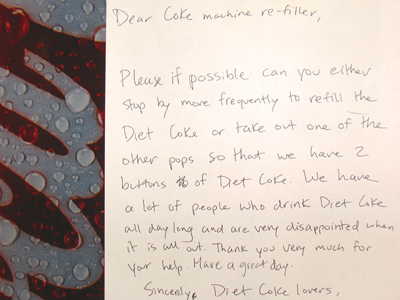 Dear Coke machine re-filler,
Please if possible can you either
stop by more frequently to refill the
Diet Coke or take out one of the
other pops so that we have 2
buttons of Diet Coke. We have
a lot of people who drink Diet Coke
all day long and are very disappointed when
it is all out. Thank you very much for
your help. Have a great day.
Sincerely, Diet Coke lovers,